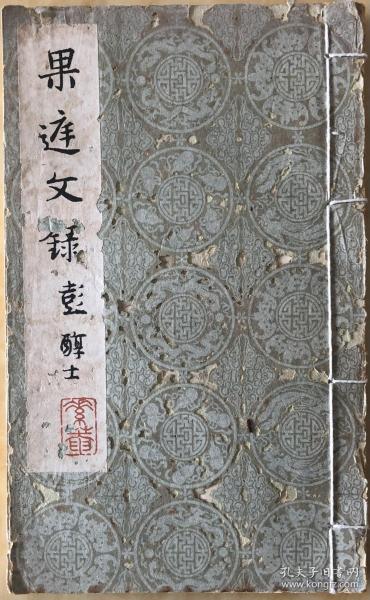 果庭文録 彭醇士
孔夫子旧书网
www.kongfz.com